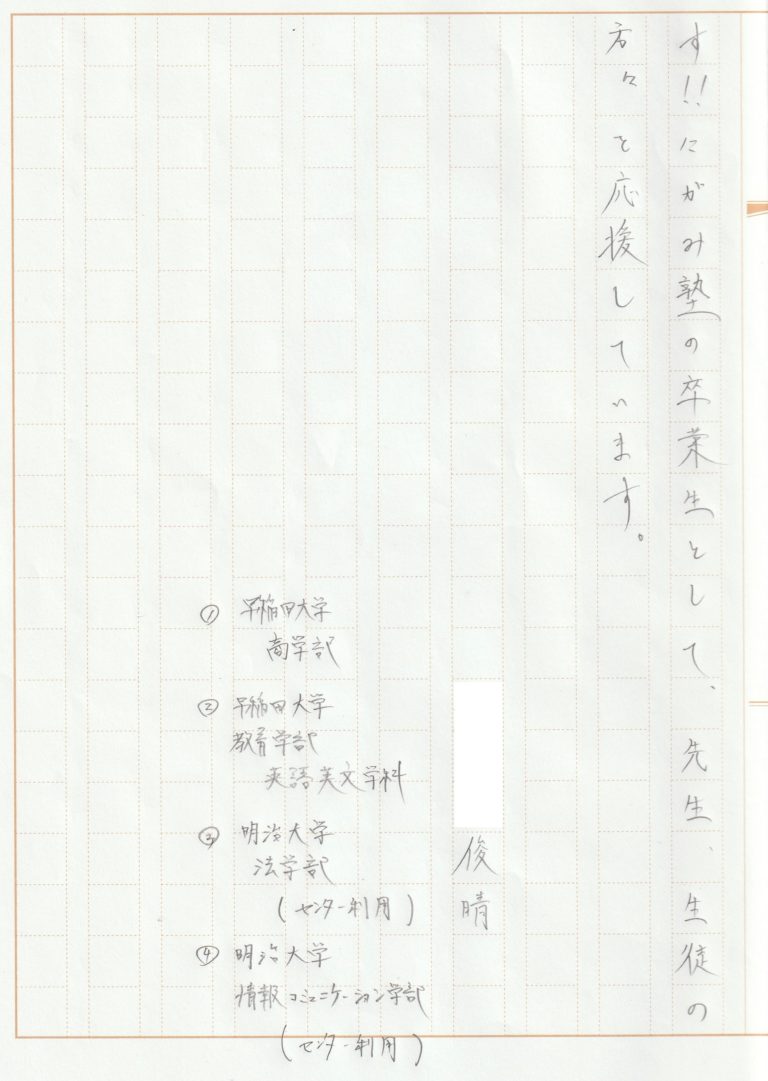 す!!にがみ塾の卒業生として、先生、生徒の
方々を応援しています。
俊晴
① 早稲田大学
商学部
② 早稲田大学
教育学部
英語英文学科
③ 明治大学
法学部
(センター利用)
④ 明治大学
情報コミュニケーション学部
(センター利用)